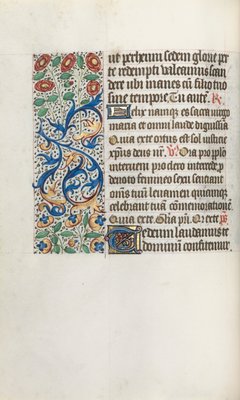 ut per theum sedem glorie per
te redempti valeamus scan
dere ubi manes cum filio tuo
sine tempore. Tu autem. R.
Felix namque es sacra virgo
maria et omni laude dignissima
Quia ex te ortus est sol iusticie
xp̄us deus nr̄. V. Ora pro pplo
interveni pro clero intercede p
devoto femineo sexu senciant
omēs tuū levamen quicumque
celebrant tuā cōmemorationē.
Quia ex te. Glia pr̄i. Qr ex te. ps
Te deum laudamus te
dominū confitemur.